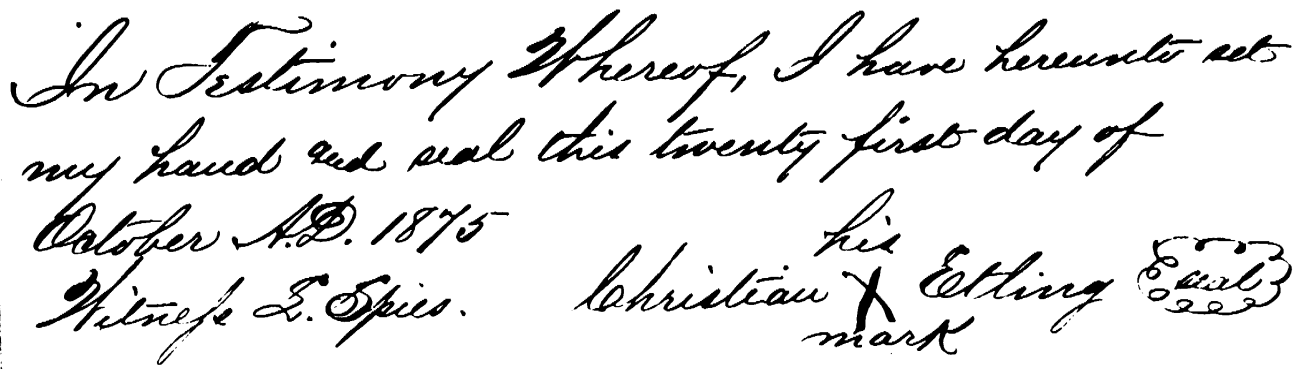 In Testimony Whereof, I have hereunto set
my hand and seal this twenty first day of
October A.D. 1875
his
Witness E. Spies. Christian X Etling seal
mark